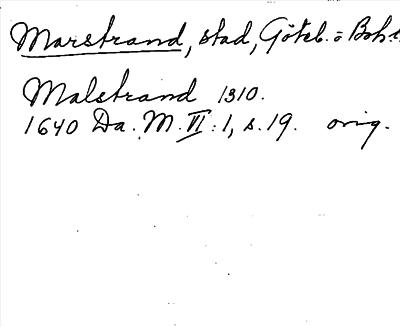 Marstrand, stad, Göteb. o Boh.
Malstrand 1310.
1640 Da. M. VI: 1, s. 19. orig.